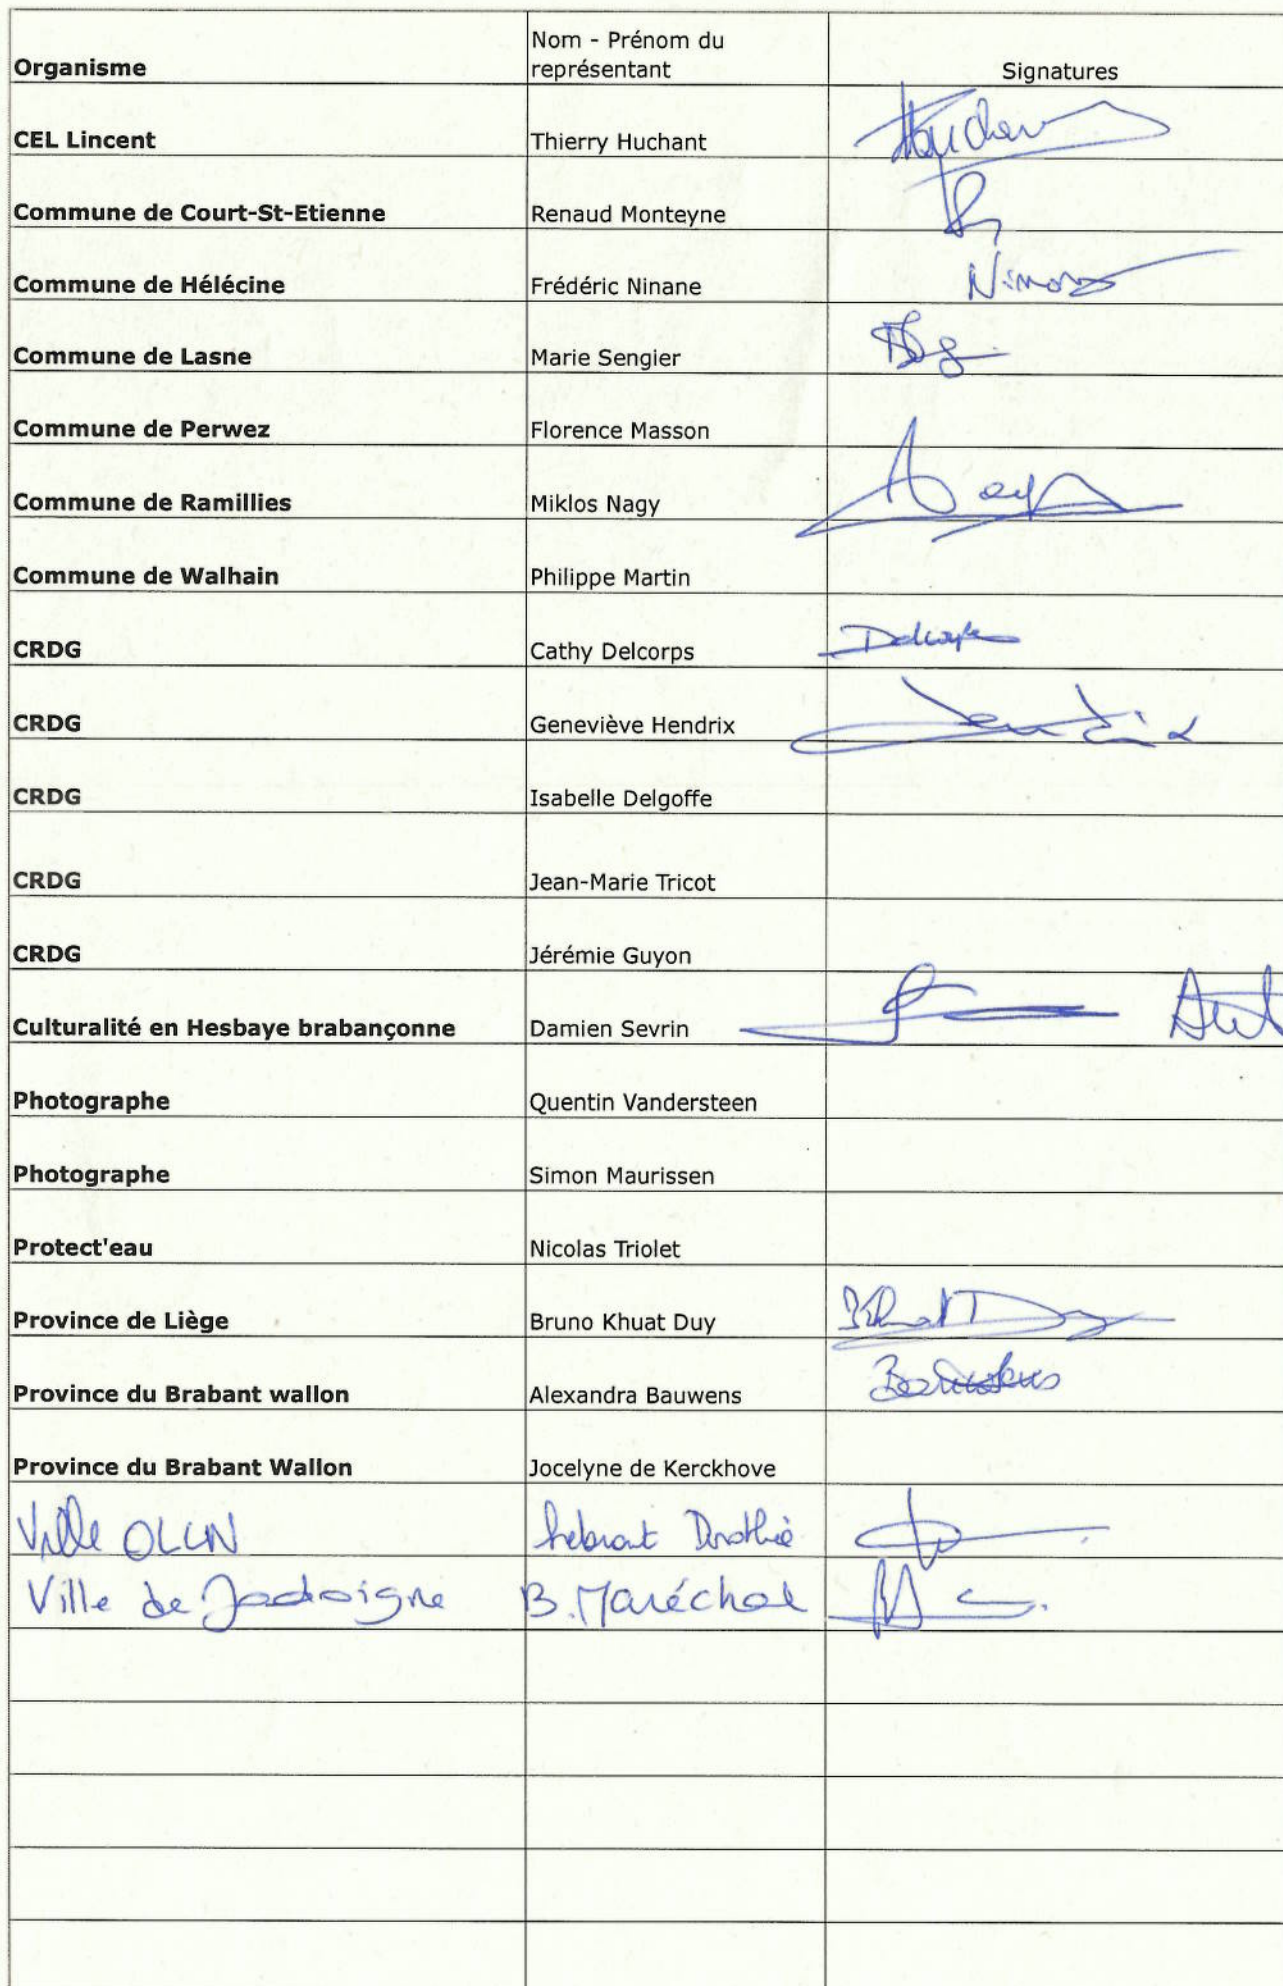 Organisme Nom - Prénom du représentant Signatures
CEL Lincent Thierry Huchant
Commune de Court-St-Etienne Renaud Monteyne
Commune de Hélécine Frédéric Ninane
Commune de Lasne Marie Sengier
Commune de Perwez Florence Masson
Commune de Ramillies Miklos Nagy
Commune de Walhain Philippe Martin
CRDG Cathy Delcorps
CRDG Geneviève Hendrix
CRDG Isabelle Delgoffe
CRDG Jean-Marie Tricot
CRDG Jérémie Guyon
Culturalité en Hesbaye brabançonne Damien Sevrin
Photographe Quentin Vandersteen
Photographe Simon Maurissen
Protect'eau Nicolas Triolet
Province de Liège Bruno Khuat Duy
Province du Brabant wallon Alexandra Bauwens
Province du Brabant Wallon Jocelyne de Kerckhove
Ville OLLN
Ville de Jodoigne B. Maréchal